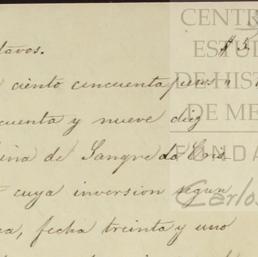 tavos.
ciento cincuenta pesos
cuenta y nueve diez
de Sangre de
cuya inversion segun
fecha treinta y uno
CENTR
ESTU
DE HIST
DE ME
FUNDA
Carlos